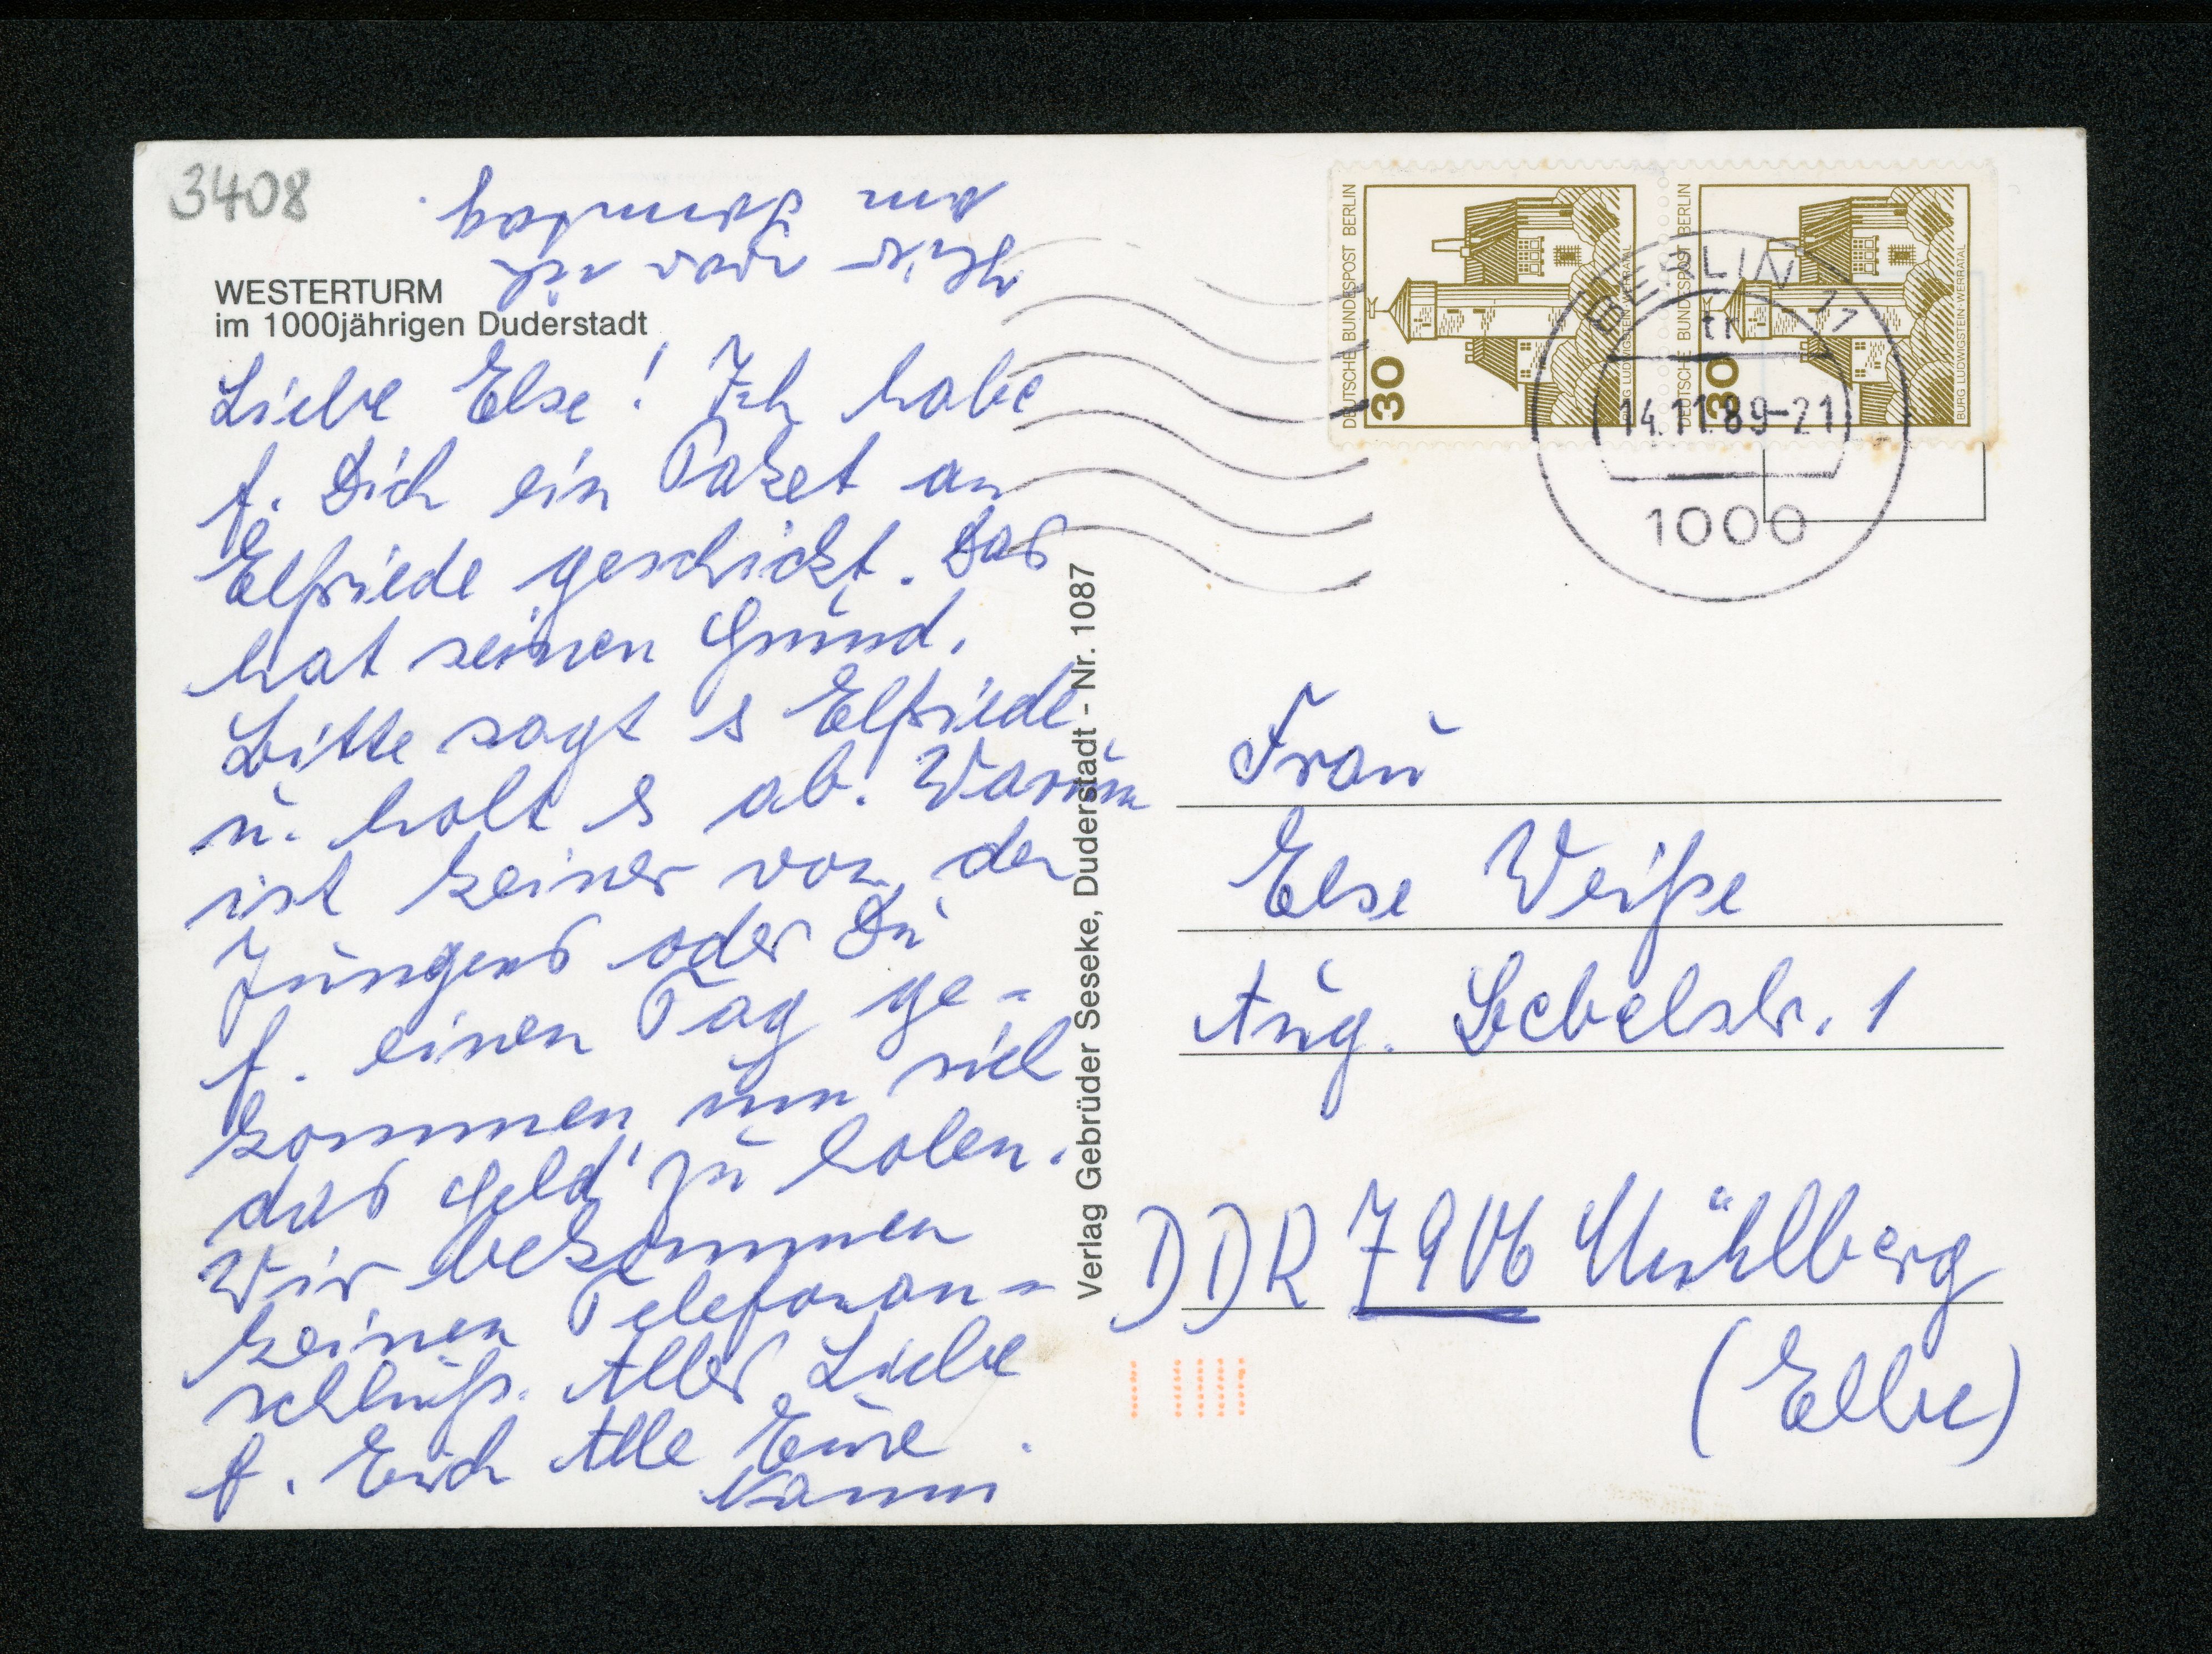 3408
Hier war ich
am Samstag.
WESTERTURM
im 1000jährigen Duderstadt
Liebe Else! Ich habe
f. Dich ein Paket an
Elfriede geschickt. Das
hat seinen Grund.
Bitte sagt s Elfriede
u. holt s ab. Warum
ist keiner von den
Jungens oder Du
f. einen Tag ge-
kommen, um sich
das Geld zu holen.
Wir bekommen
keinen Telefonan-
schluß. Alles Liebe
f. Euch Alle Eure
Verlag Gebrüder Seseke, Duderstadt - Nr. 1087
DEUTSCHE BUNDESPOST BERLIN
30
BURG LUDWIGSTEIN·WERRATAL
DEUTSCHE BUNDESPOST BERLIN
30
BURG LUDWIGSTEIN·WERRATAL
BERLIN 11
tr
14.11.89-21
1000
Frau
Else Weiße
Aug. Bebelstr. 1
DDR 7906 Mühlberg
(Elbe)